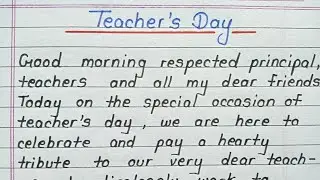 Teacher's Day
Good morning respected principal,
teachers and all my dear friends
Today on the special occasion of
teacher's day, we are here to
celebrate and pay a hearty
tribute to our very dear teach-
work to